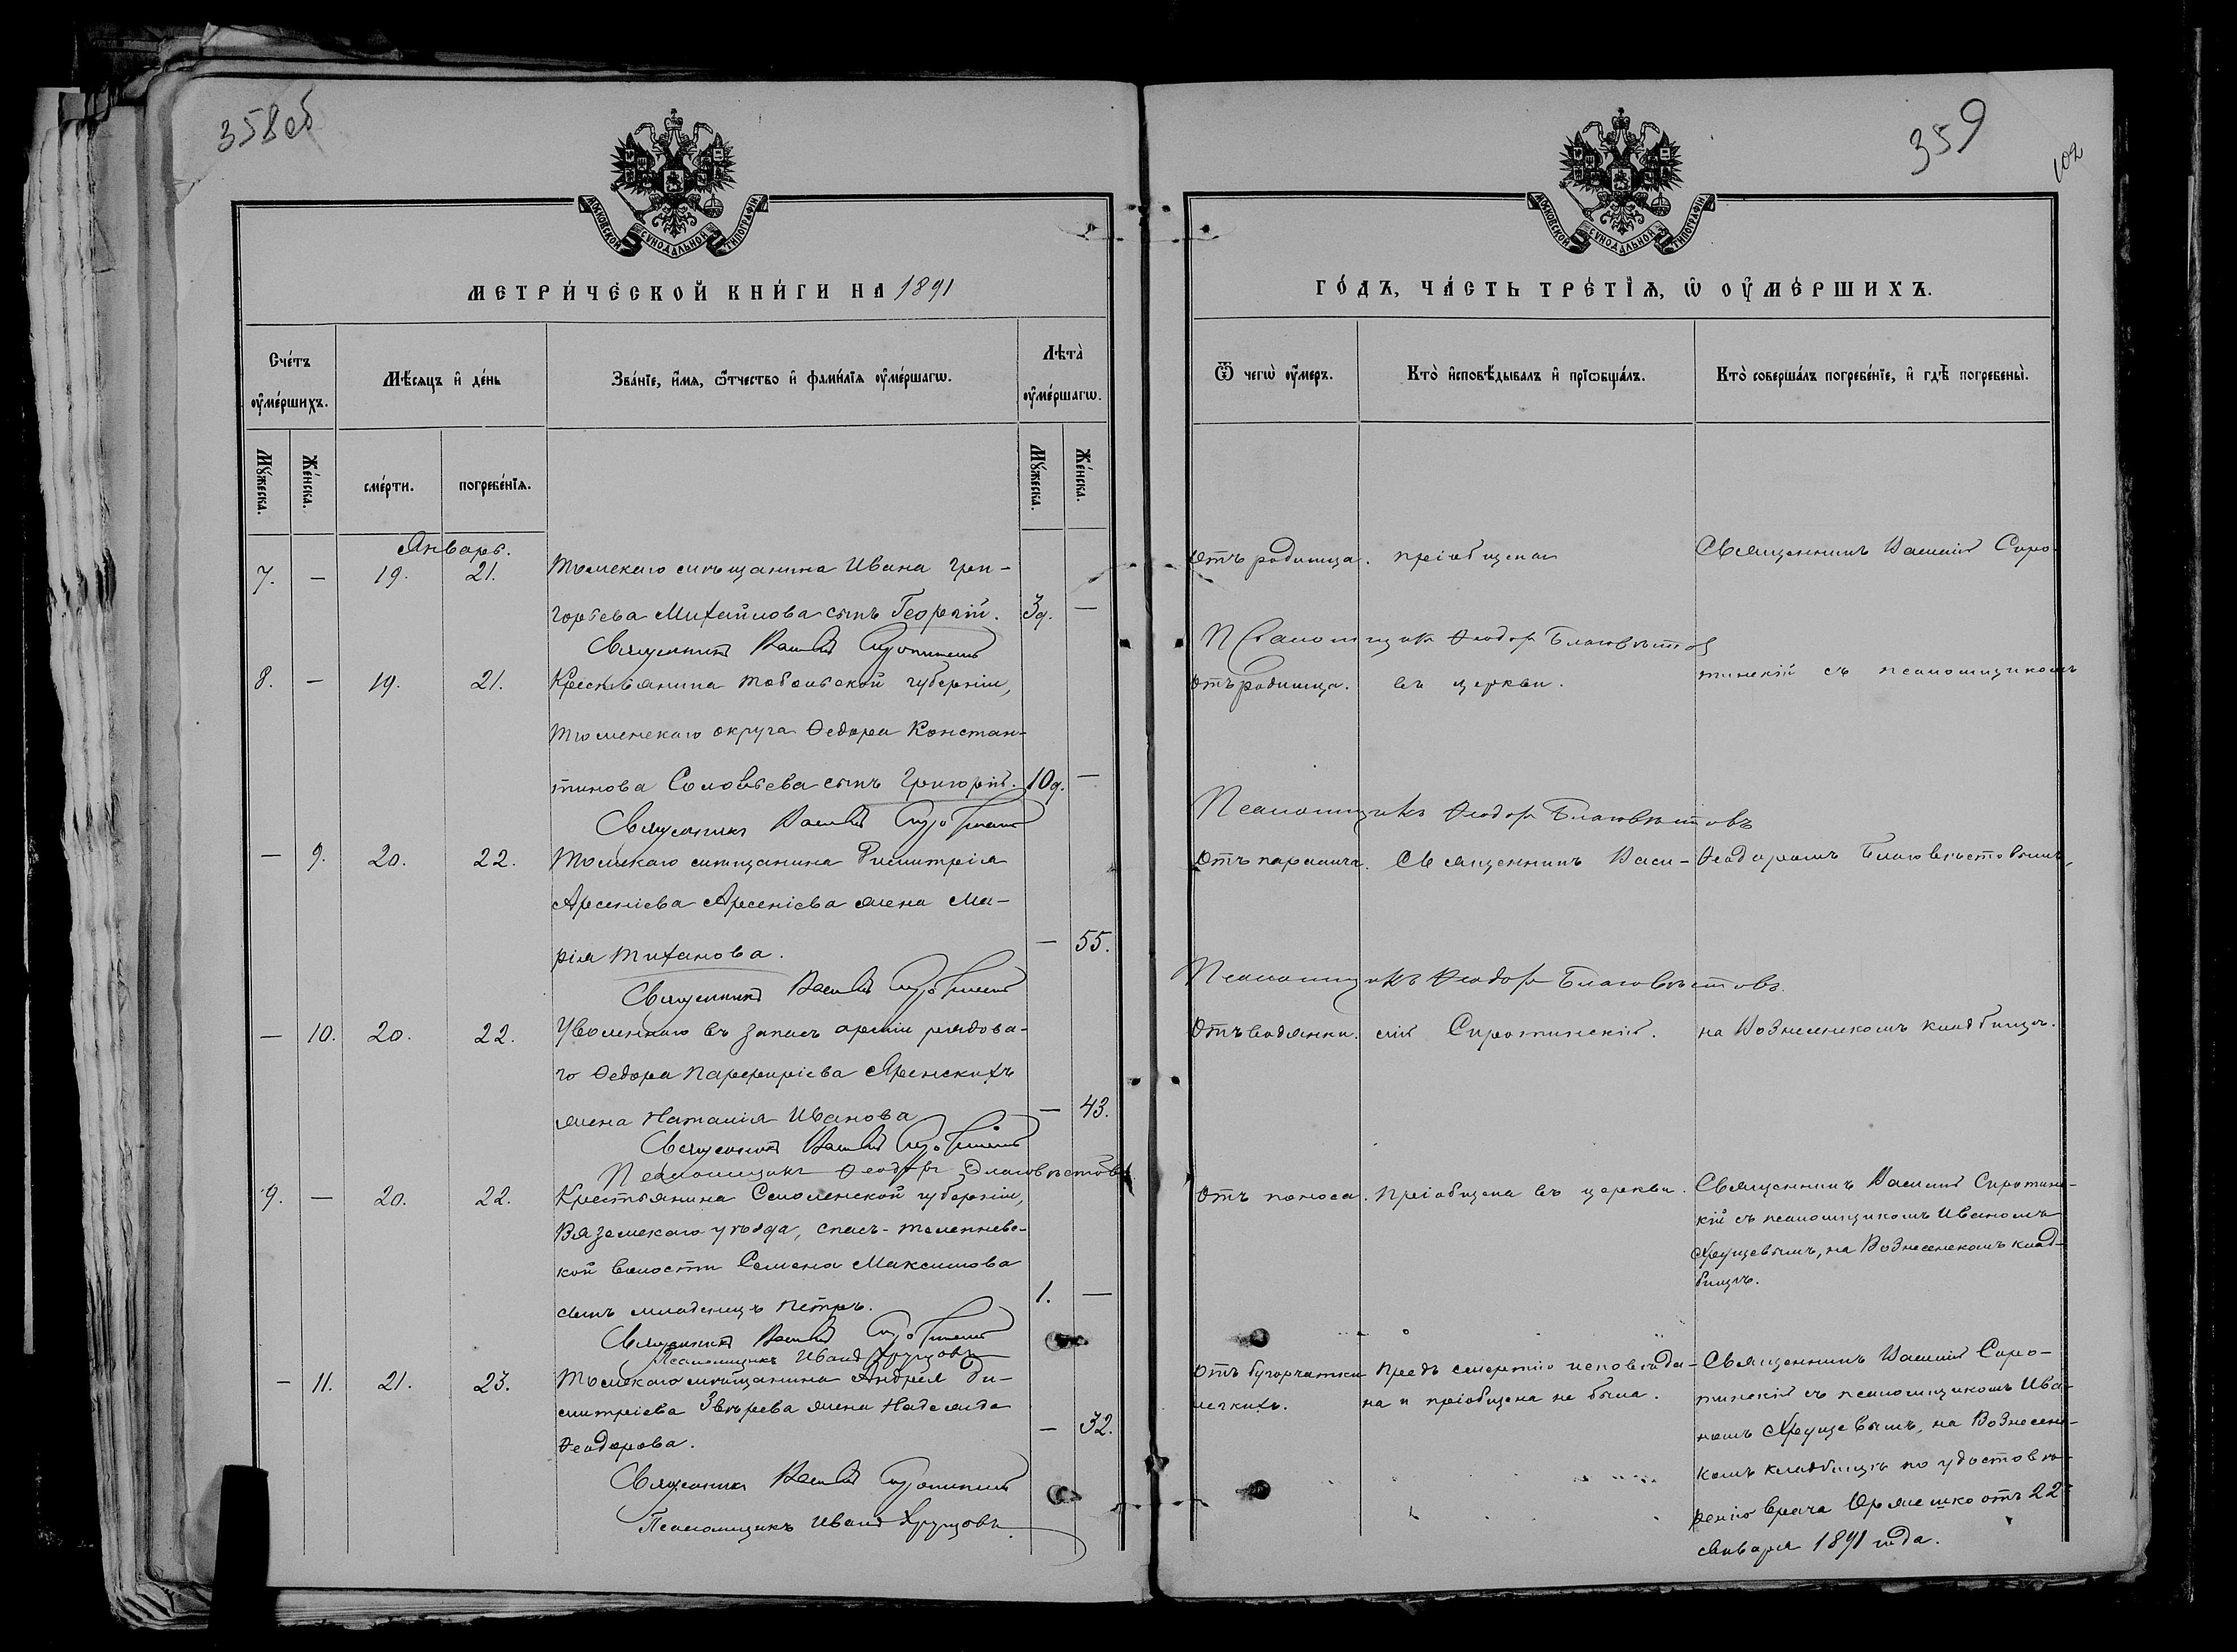 358 об
МОСКОВСКОЙ СУНОДАЛЬНОЙ ТИПОГРАФІИ
МЕТРИ́ЧЕСКОЙ КНИ́ГИ НА 1891
Сче́тъ ᲂу҆ме́ршихъ.
Мѣ́сяцъ и҆ де́нь
Зва́нїе, и҆́мѧ, ѻ҆́тчество и҆ фами́лїѧ ᲂу҆ме́ршагѡ.
Лѣта̀ ᲂу҆ме́ршагѡ.
Мꙋ́жеска.
Же́нска.
сме́рти.
погребе́нїѧ.
Мꙋ́жеска.
Же́нска.
Январь.
7. — 19. 21. Томскаго мѣщанина Ивана Гри-
горьева Михайлова сынъ Георгій. 3д. —
Священникъ Василій Сиротинскій
8. — 19. 21. Крестьянина Тобольской губерніи,
Тюменскаго округа Ѳедора Констан-
тинова Соловьева сынъ Григорій. 10д. —
Священникъ Василій Сиротинскій
— 9. 20. 22. Томскаго мѣщанина Димитрія
Арсеніева Арсеніева жена Ма-
рія Тиханова. — 55.
Священникъ Василій Сиротинскій
— 10. 20. 22. Уволеннаго въ запасъ арміи рядова-
го Ѳедора Парфиріева Яренскихъ
жена Наталія Иванова — 43.
Священникъ Василій Сиротинскій
Псаломщикъ Ѳеодоръ Благовѣстовъ
9. — 20. 22. Крестьянина Смоленской губерніи,
Вяземскаго уѣзда, Спасъ-
кой волости Семена Максимова
сынъ младенецъ Петръ. 1. —
Священникъ Василій Сиротинскій
Псаломщикъ Иванъ Хрущовъ
— 11. 21. 23. Томскаго мѣщанина Андрея Ди-
митріева Звѣрева жена Надежда
Ѳеодорова. — 32.
Священникъ Василій Сиротинскій
Псаломщикъ Иванъ Хрущовъ
359
102
МОСКОВСКОЙ СУНОДАЛЬНОЙ ТИПОГРАФІИ
ГО́ДЪ, ЧА́СТЬ ТРЕ́ТЇѦ, Ѡ҆ ОУ҆МЕ́РШИХЪ.
Ѿ чегѡ̀ ᲂу҆́меръ.
Кто̀ и҆сповѣ́дывалъ и҆ прїѡбща́лъ.
Кто̀ соверша́лъ погребе́нїе, и҆ гдѣ̀ погребены̀.
Отъ родимца. пріобщены Священникъ Василій Сиро-
Псаломщикъ Ѳеодоръ Благовѣстовъ
Отъ родимца. въ церкви. тинскій съ псаломщикомъ
Псаломщикъ Ѳеодоръ Благовѣстовъ
Отъ паралича. Священникъ Васи- Ѳеодоромъ Благовѣстовымъ,
Псаломщикъ Ѳеодоръ Благовѣстовъ.
Отъ водянки. лій Сиротинскій. на Вознесенскомъ кладбищѣ.
Отъ поноса. Пріобщена въ церкви. Священникъ Василій Сиротинс-
кій съ псаломщикомъ Иваномъ
Хрущевымъ, на Вознесенскомъ клад-
бищѣ.
Отъ бугорчатки Предъ смертію исповѣда- Священникъ Василій Сиро-
легкихъ. на и пріобщена не была. тинскій съ псаломщикомъ Ива-
номъ Хрущевымъ, на Вознесенс-
комъ кладбищѣ по удостовѣ-
ренію врача Оржешко отъ 22
Января 1891 года.